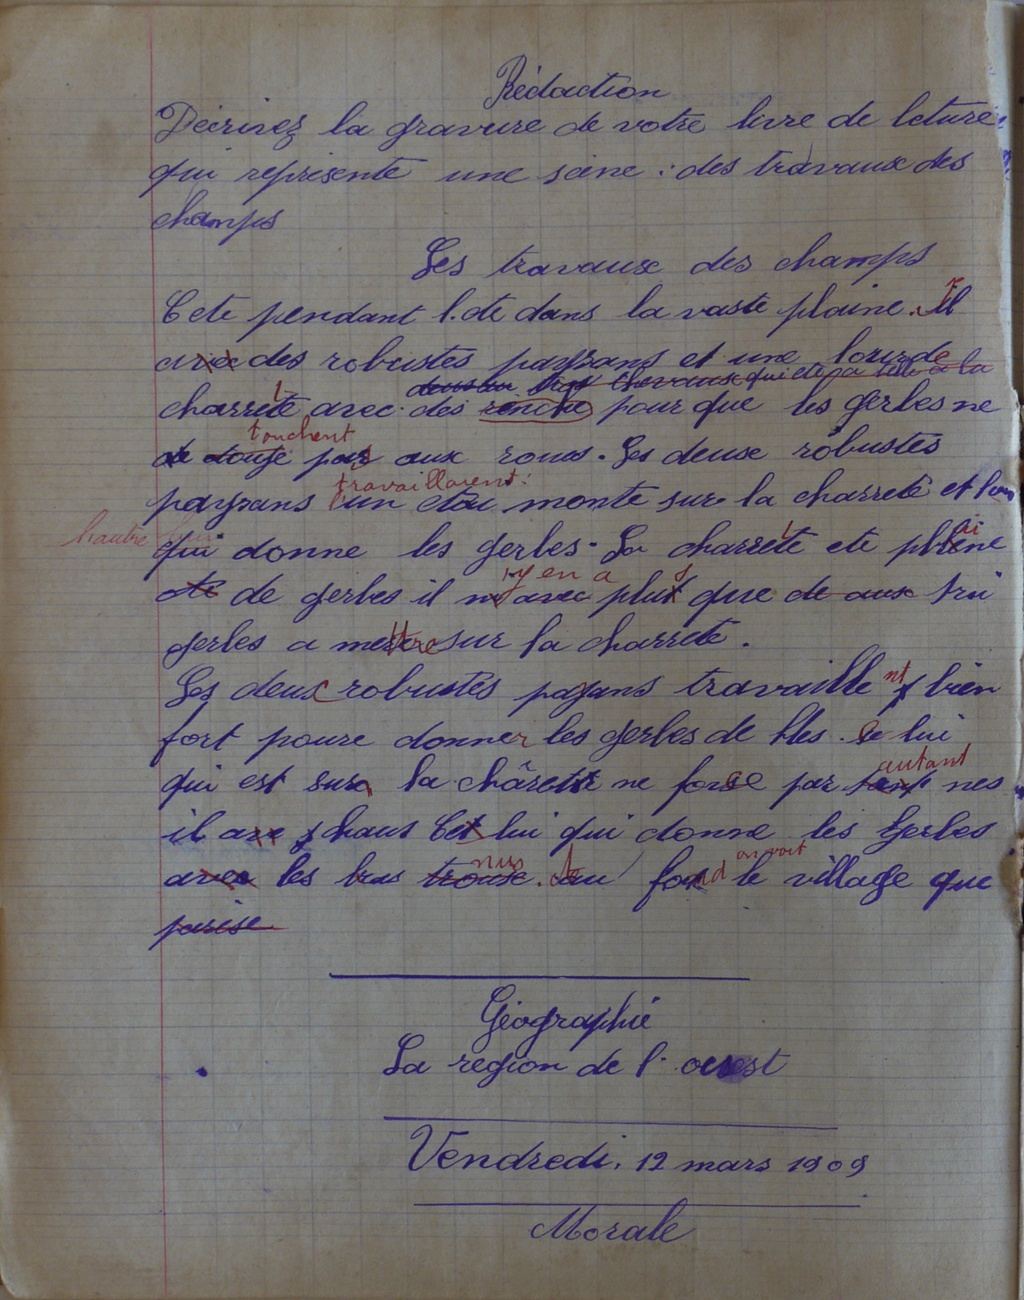 Rédaction
Décrivez la gravure de votre livre de lecture
qui représente une scène : des travaux des
champs
Les travaux des champs
Cete pendant l.ete dans la vaste plaine. Il
avec des robustes paysans et une lourde
deux ou trois chevaux qui ete pa telle a la
charrete avec des pour que les gerbes ne
touchent
de pas aux roues. Les deux robustes
travaillaient
paysans un etai monte sur la charrete et l'un
l'autre
qui donne les gerbes. La charrete ete pleine
ai
y en a s
de gerbes il avec plus que de aux tri
gerbes a mettre sur la charrete.
Les deux robustes paysans travaille nt bien
fort poure donner les gerbes de bles. Ce lui
autant
qui est sur la chârette ne force par tant nes
il ave chaus Cet lui qui donne les gerbes
nus on voit
avec les bras trousse. Au fond le village que
parise
Géographie
La region de l'ouest
Vendredi, 12 mars 1909
Morale